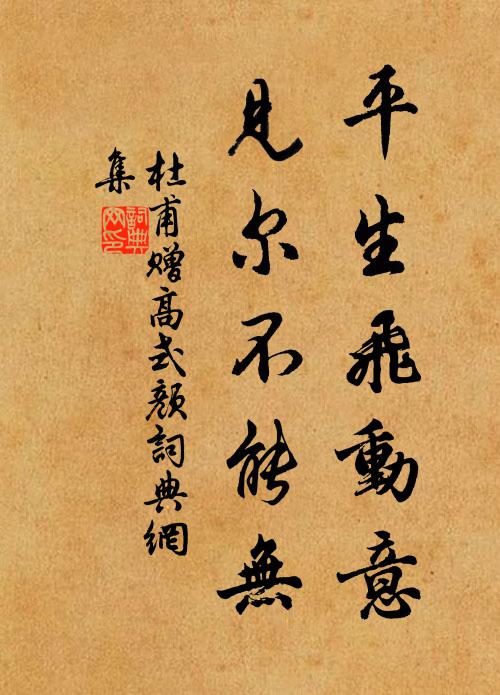 平生飛動意
見尔不能無
杜甫贈高式顏詞典網
集
詞典
网印